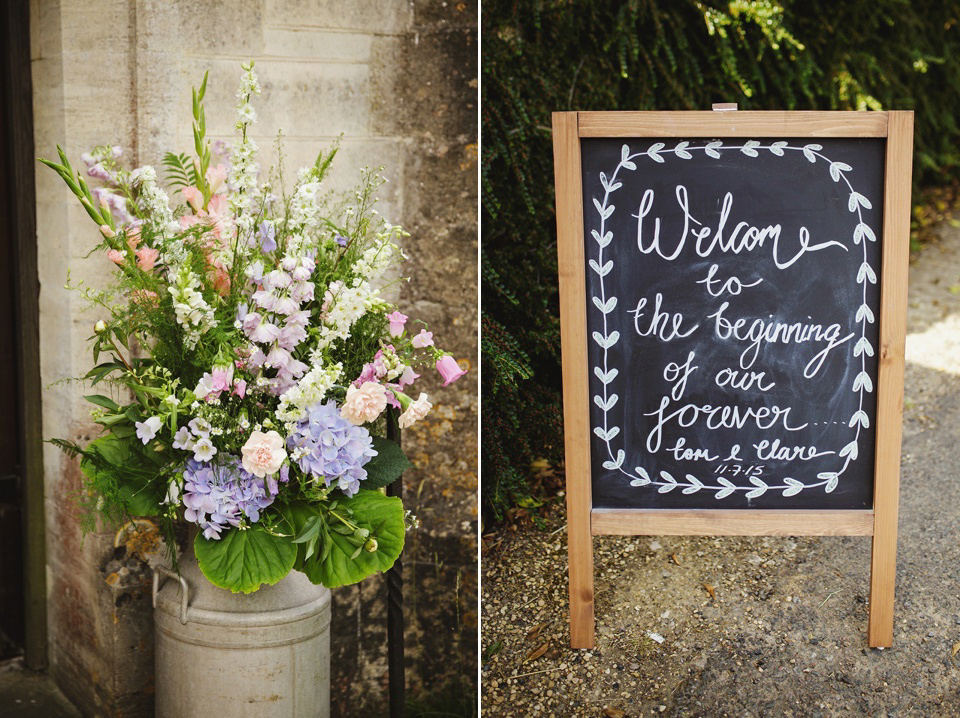 Welcome
to
the beginning
of our
forever.....
Tom & Clare
11.7.15